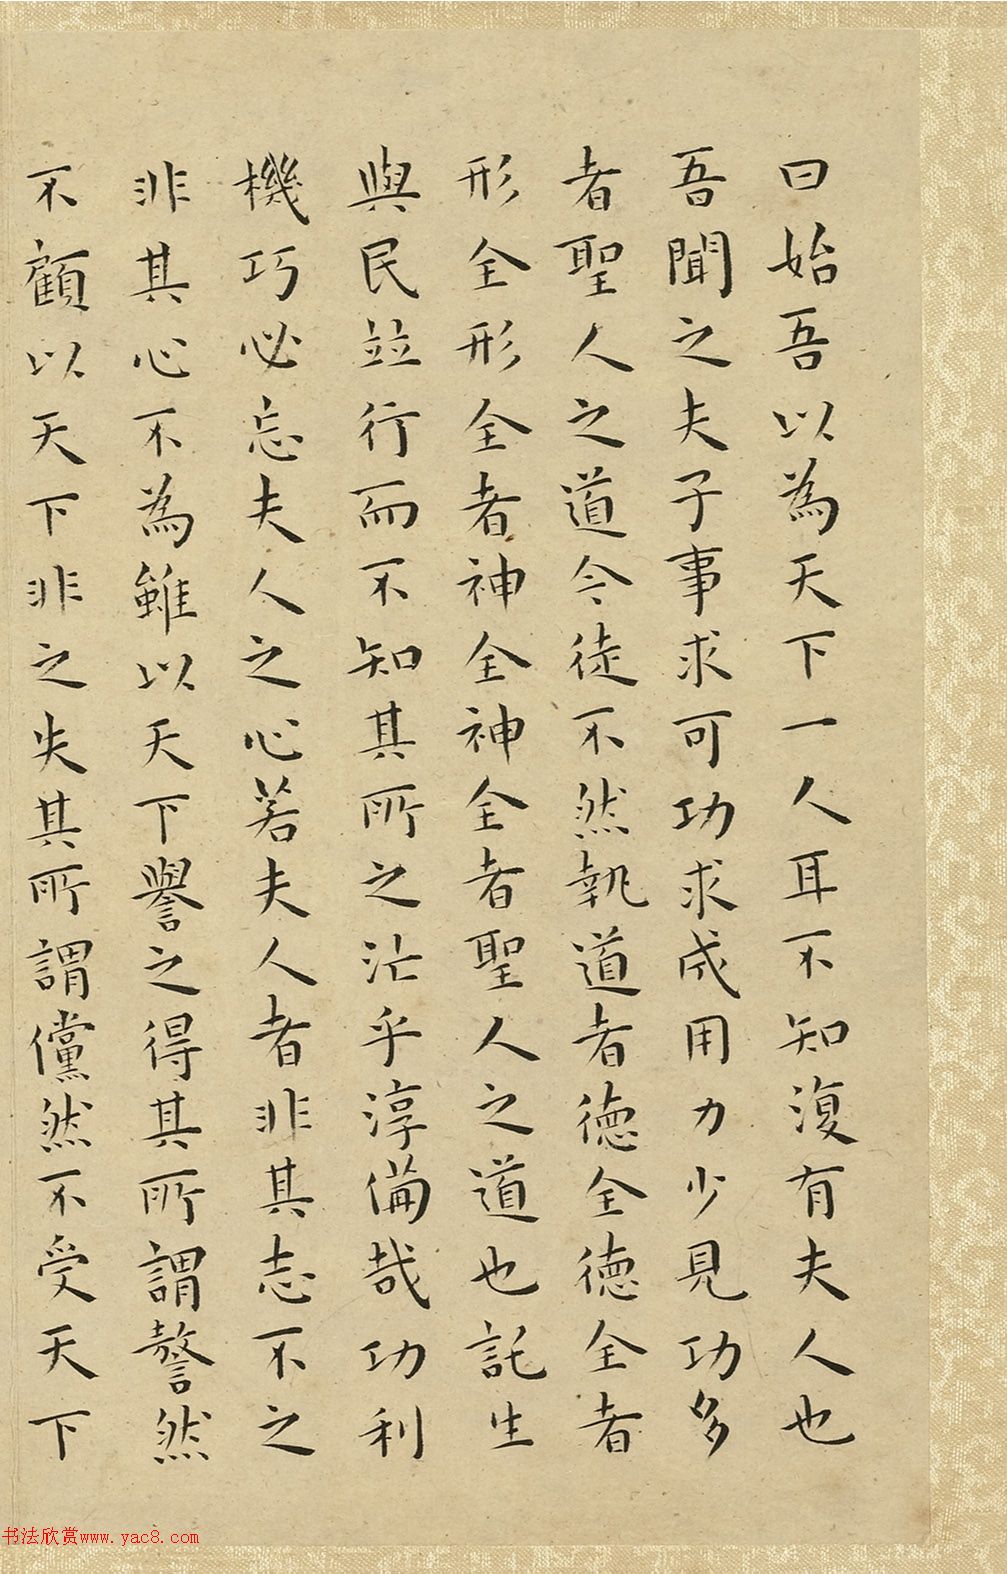 曰始吾以為天下一人耳不知復有夫人也
吾聞之夫子事求可功求成用力少見功多
者聖人之道今徒不然執道者德全德全者
形全形全者神全神全者聖人之道也託生
與民並行而不知其所之汒乎淳備哉功利
機巧必忘夫人之心若夫人者非其志不之
非其心不為雖以天下譽之得其所謂謷然
不顧以天下非之失其所謂儻然不受天下
书法欣赏www.yac8.com